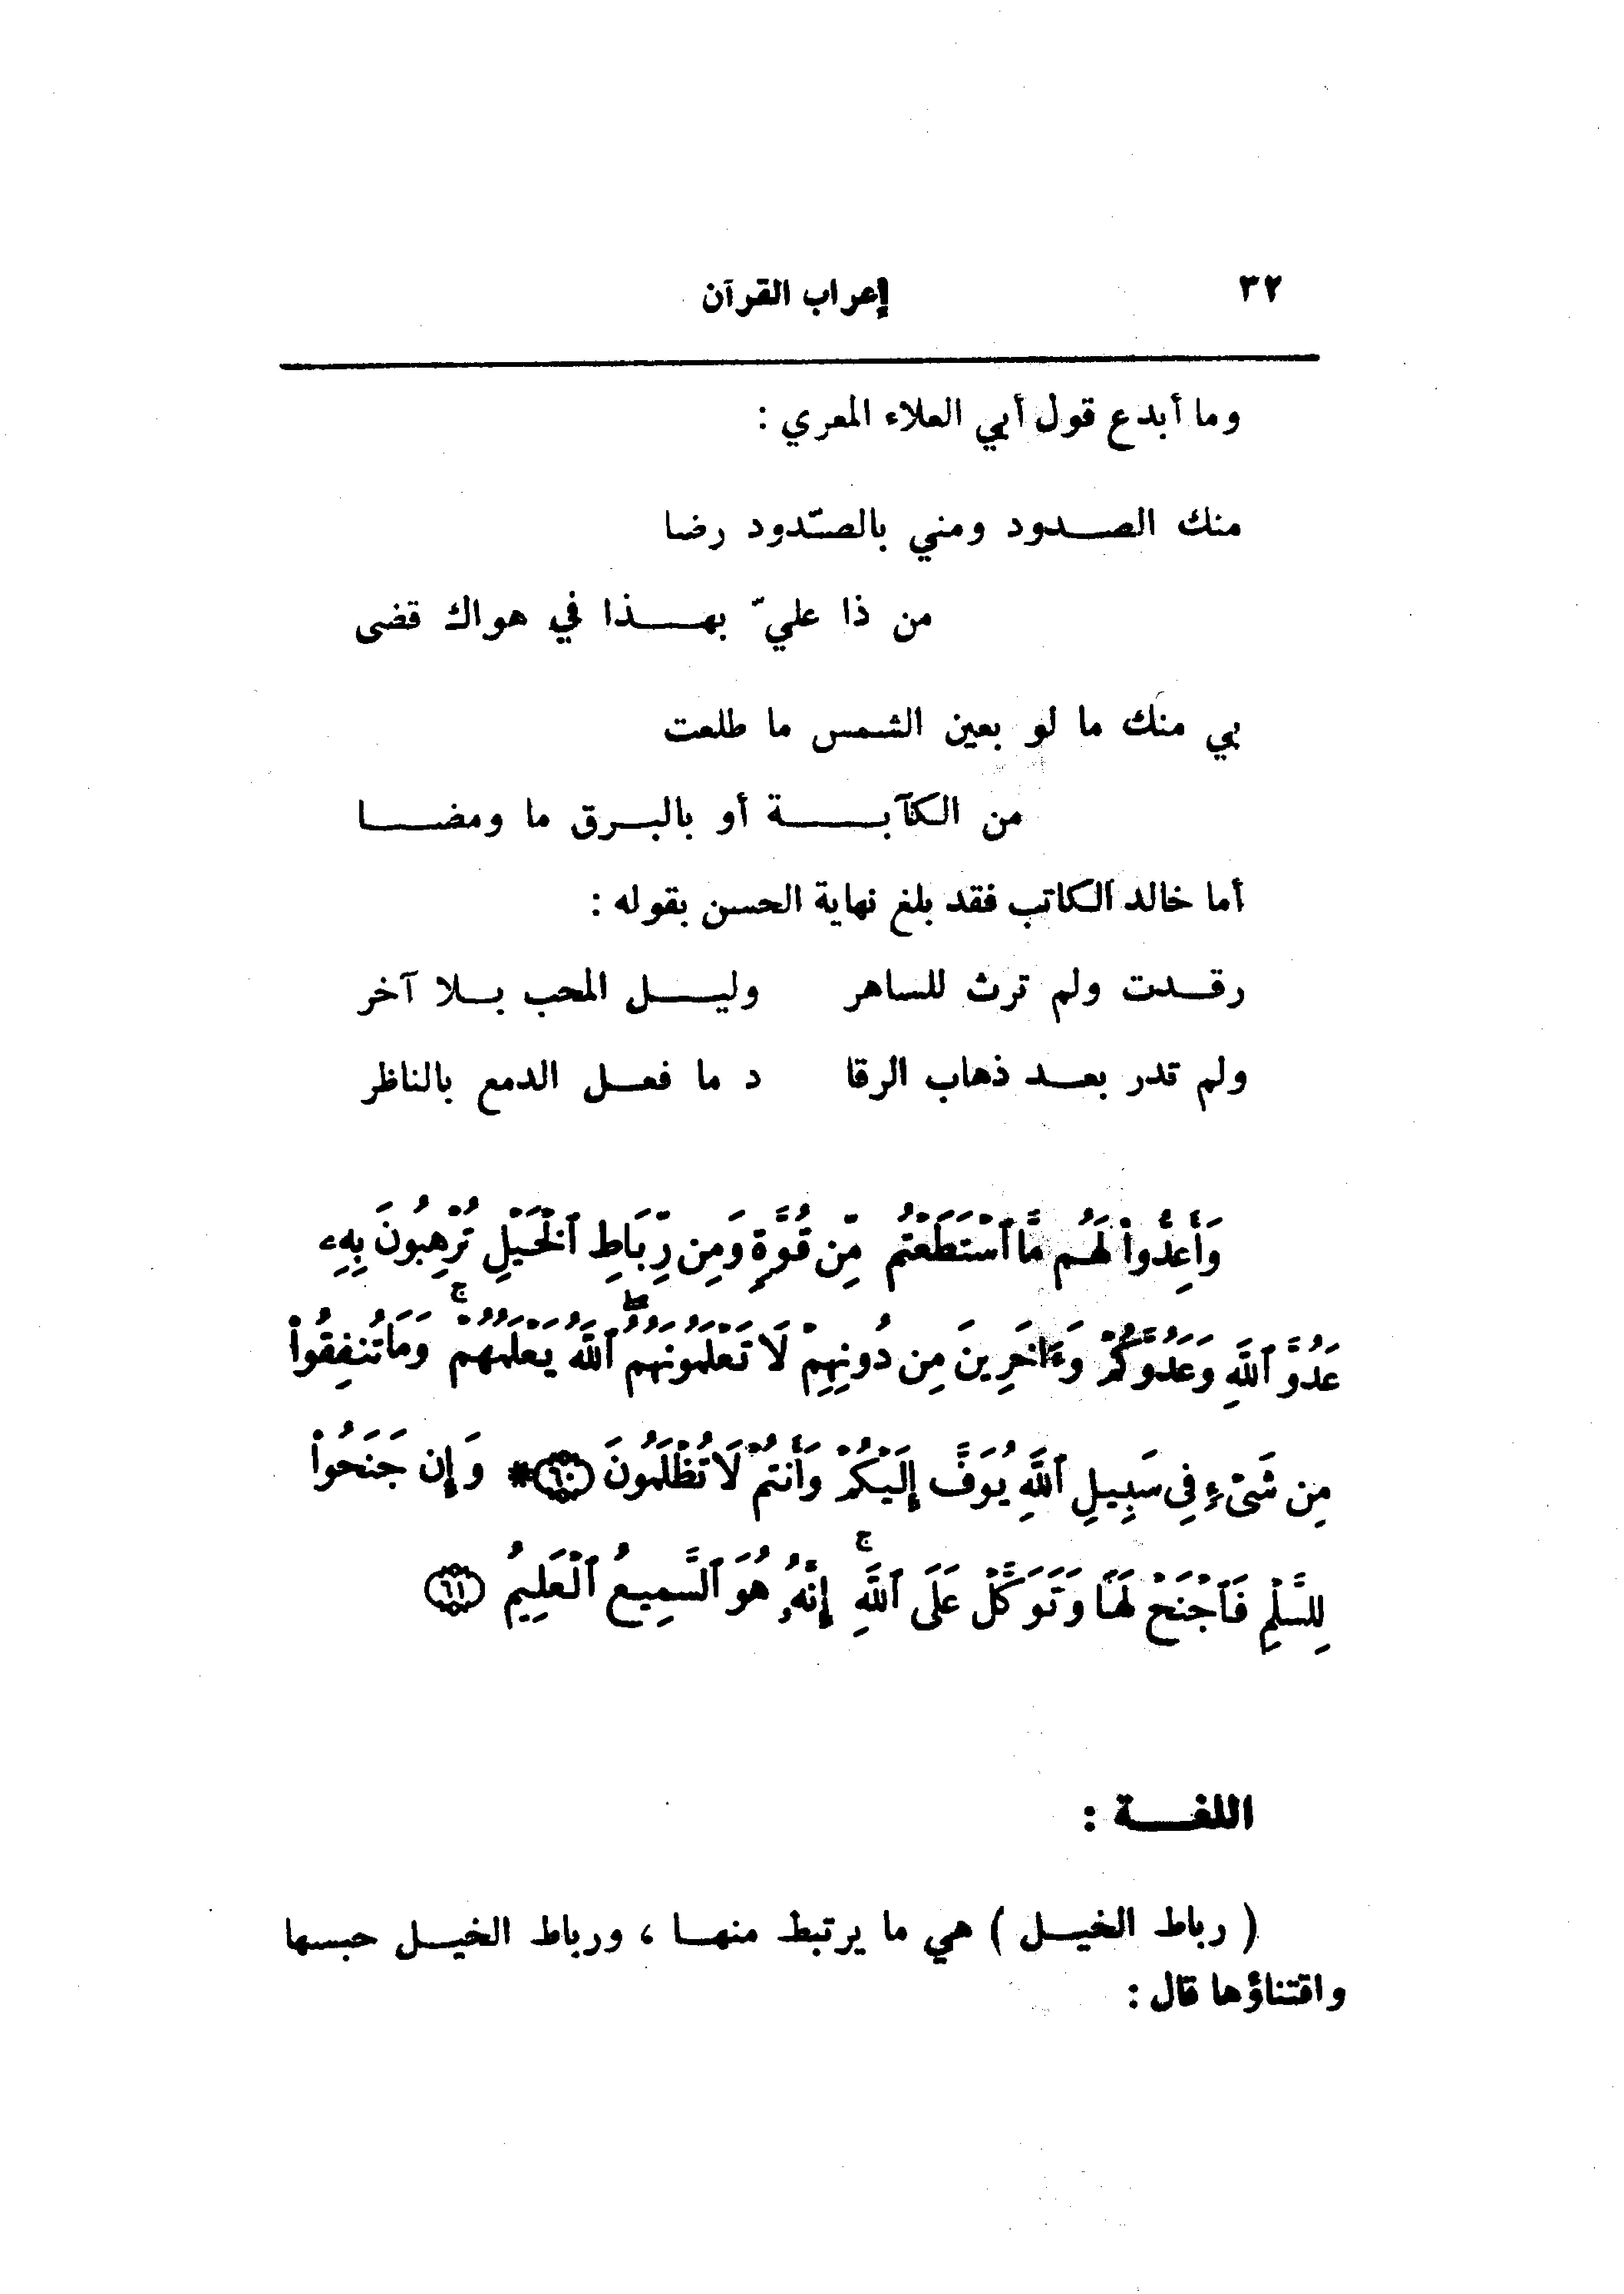 ٣٢ إعراب القرآن
وما أبدع قول أبي العلاء المعري :
منك الصدود ومني بالصّدود رضا
من ذا عليّ بهذا في هواك قضى
بي منك ما لو بعين الشمس ما طلعت
من الكآبة أو بالبرق ما ومضا
أما خالد الكاتب فقد بلغ نهاية الحسن بقوله :
رقدت ولم ترث للساهر وليل المحب بلا آخر
ولم تدر بعد ذهاب الرقا د ما فعل الدمع بالناظر
وَأَعِدُّواْ لَهُم مَّا ٱسْتَطَعْتُم مِّن قُوَّةٍ وَمِن رِّبَاطِ ٱلْخَيْلِ تُرْهِبُونَ بِهِۦ
عَدُوَّ ٱللَّهِ وَعَدُوَّكُمْ وَءَاخَرِينَ مِن دُونِهِمْ لَا تَعْلَمُونَهُمُ ٱللَّهُ يَعْلَمُهُمْ ۚ وَمَا تُنفِقُواْ
مِن شَىْءٍ فِى سَبِيلِ ٱللَّهِ يُوَفَّ إِلَيْكُمْ وَأَنتُمْ لَا تُظْلَمُونَ ٦٠ * وَإِن جَنَحُواْ
لِلسَّلْمِ فَٱجْنَحْ لَهَا وَتَوَكَّلْ عَلَى ٱللَّهِ ۚ إِنَّهُۥ هُوَ ٱلسَّمِيعُ ٱلْعَلِيمُ ٦١
اللغة :
( رباط الخيل ) هي ما يرتبط منها ، ورباط الخيل حبسها
واقتناؤها قال :